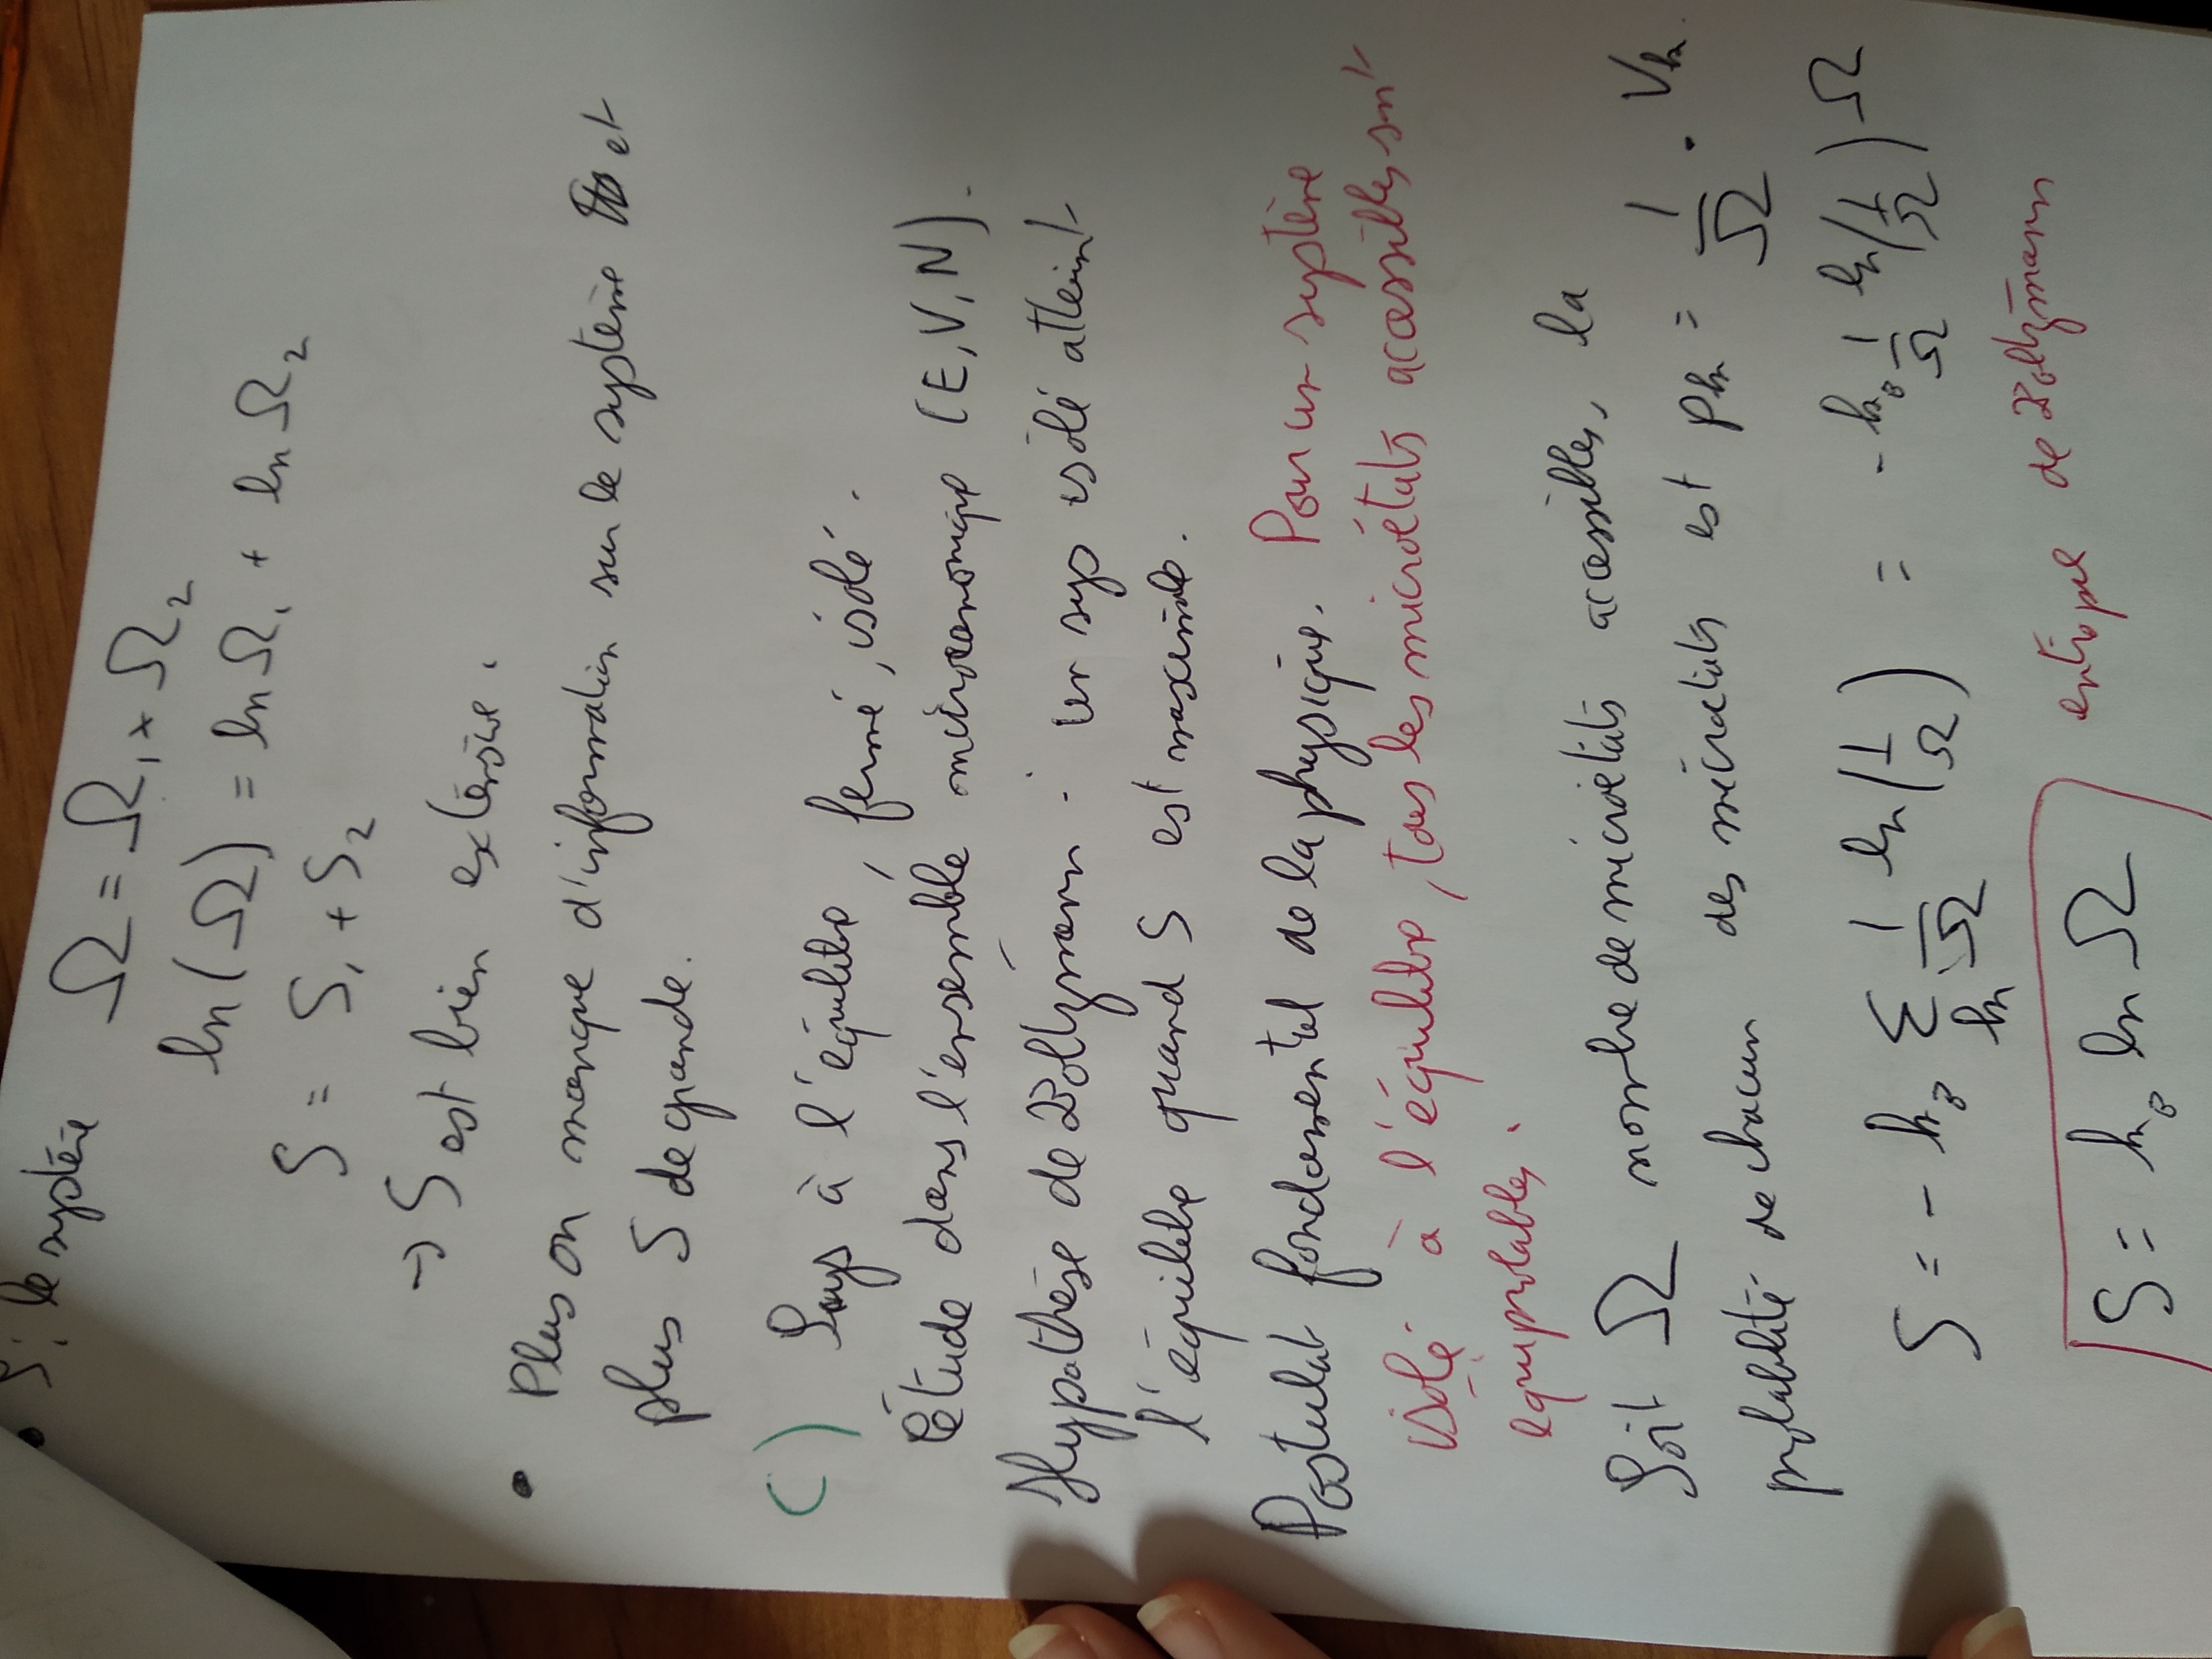 S : le système Ω = Ω₁ × Ω₂
ln(Ω) = ln Ω₁ + ln Ω₂
S = S₁ + S₂
→ S est bien extensive.
• Plus on manque d'information sur le système et
plus S de grande.
C) Sys à l'équilibre, fermé, isolé.
Étude dans l'ensemble microcanonique (E, V, N).
Hypothèse de Boltzmann : un sys isolé atteint
l'équilibre quand S est maximale.
Postulat fondamental de la physique. Pour un système
isolé à l'équilibre, tous les microétats accessibles snt
équiprobables.
Soit Ω nombre de microétats accessibles, la
probabilité de chacun des microétats est Pₖ = 1/Ω . ∀k.
S = - k_B Σₖ 1/Ω ln(1/Ω) = - k_B 1/Ω ln(1/Ω) Ω
S = k_B ln Ω entropie de Boltzmann